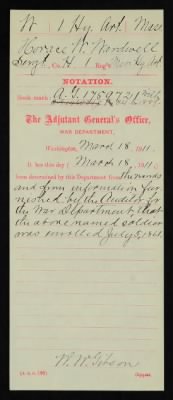 W 1 Hy. Art. Mass.
Horace W. Wardwell
Co. H, 1 Reg't Mass Hy Art
NOTATION.
Book mark: A.G. 1759721
The Adjutant General's Office,
WAR DEPARTMENT,
Washington, March 18, 1911.
It has this day (March 18, 1911)
been determined by this Department from the records
and from information fur-
nished by the Auditor for
the War Department, that
the above named soldier
was enrolled July 5, 1861.
W. W. Gibson
Copyist.